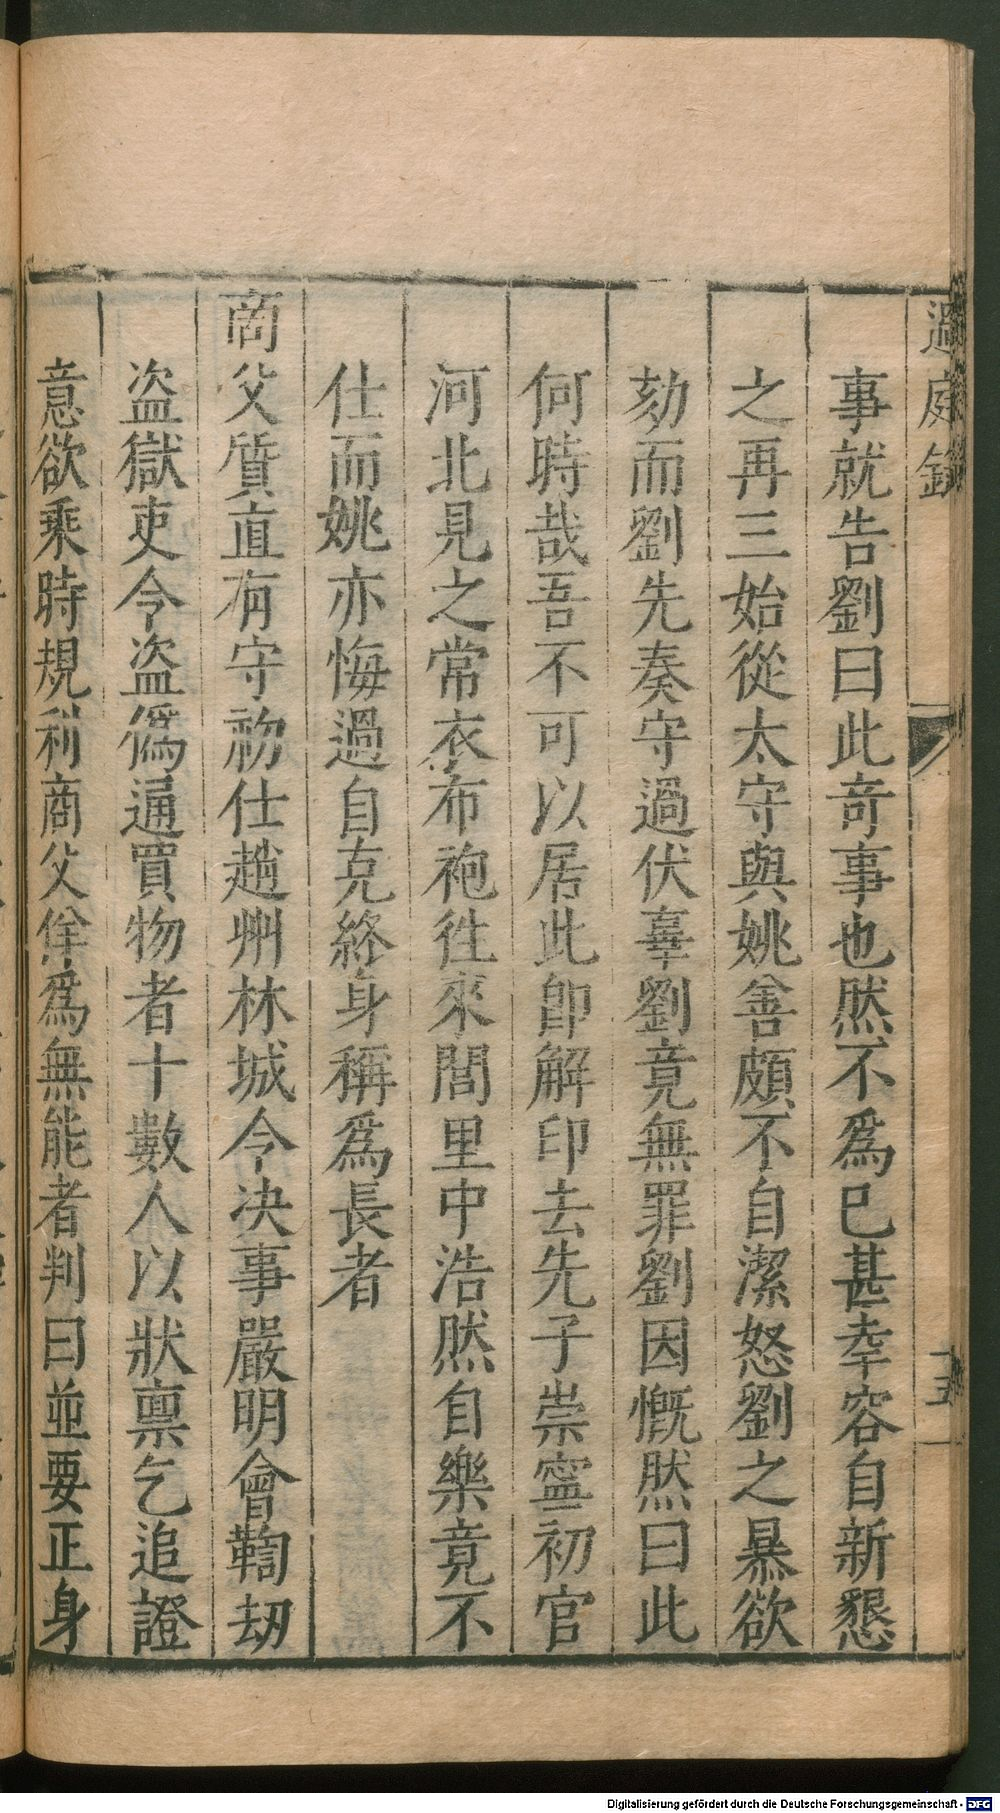 過庭錄
五
事就告劉曰此奇事也然不爲已甚幸容自新懇
之再三始從太守與姚舍頗不自潔怒劉之暴欲
劾而劉先奏守過伏辜劉竟無罪劉因慨然曰此
何時哉吾不可以居此卽解印去先子崇寧初官
河北見之常衣布袍徃來閭里中浩然自樂竟不
仕而姚亦悔過自克終身稱爲長者
商父質直有守初仕趙州林城令决事嚴明會鞫劫
盜獄吏令盜僞通買物者十數人以狀禀乞追證
意欲乘時規利商父佯爲無能者判曰並要正身
Digitalisierung gefördert durch die Deutsche Forschungsgemeinschaft - DFG